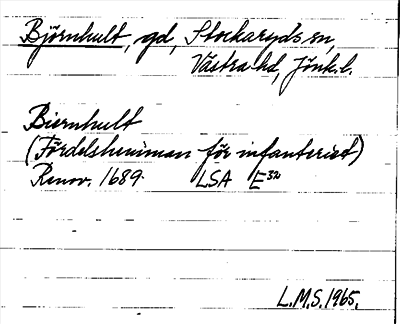 Björnhult, gd, Stockaryds sn,
Västra hd, Jönk. l.
Biernhult
(Fördelshemman för infanteriet)
Renov. 1689. LSA E32
L.M.S. 1965.